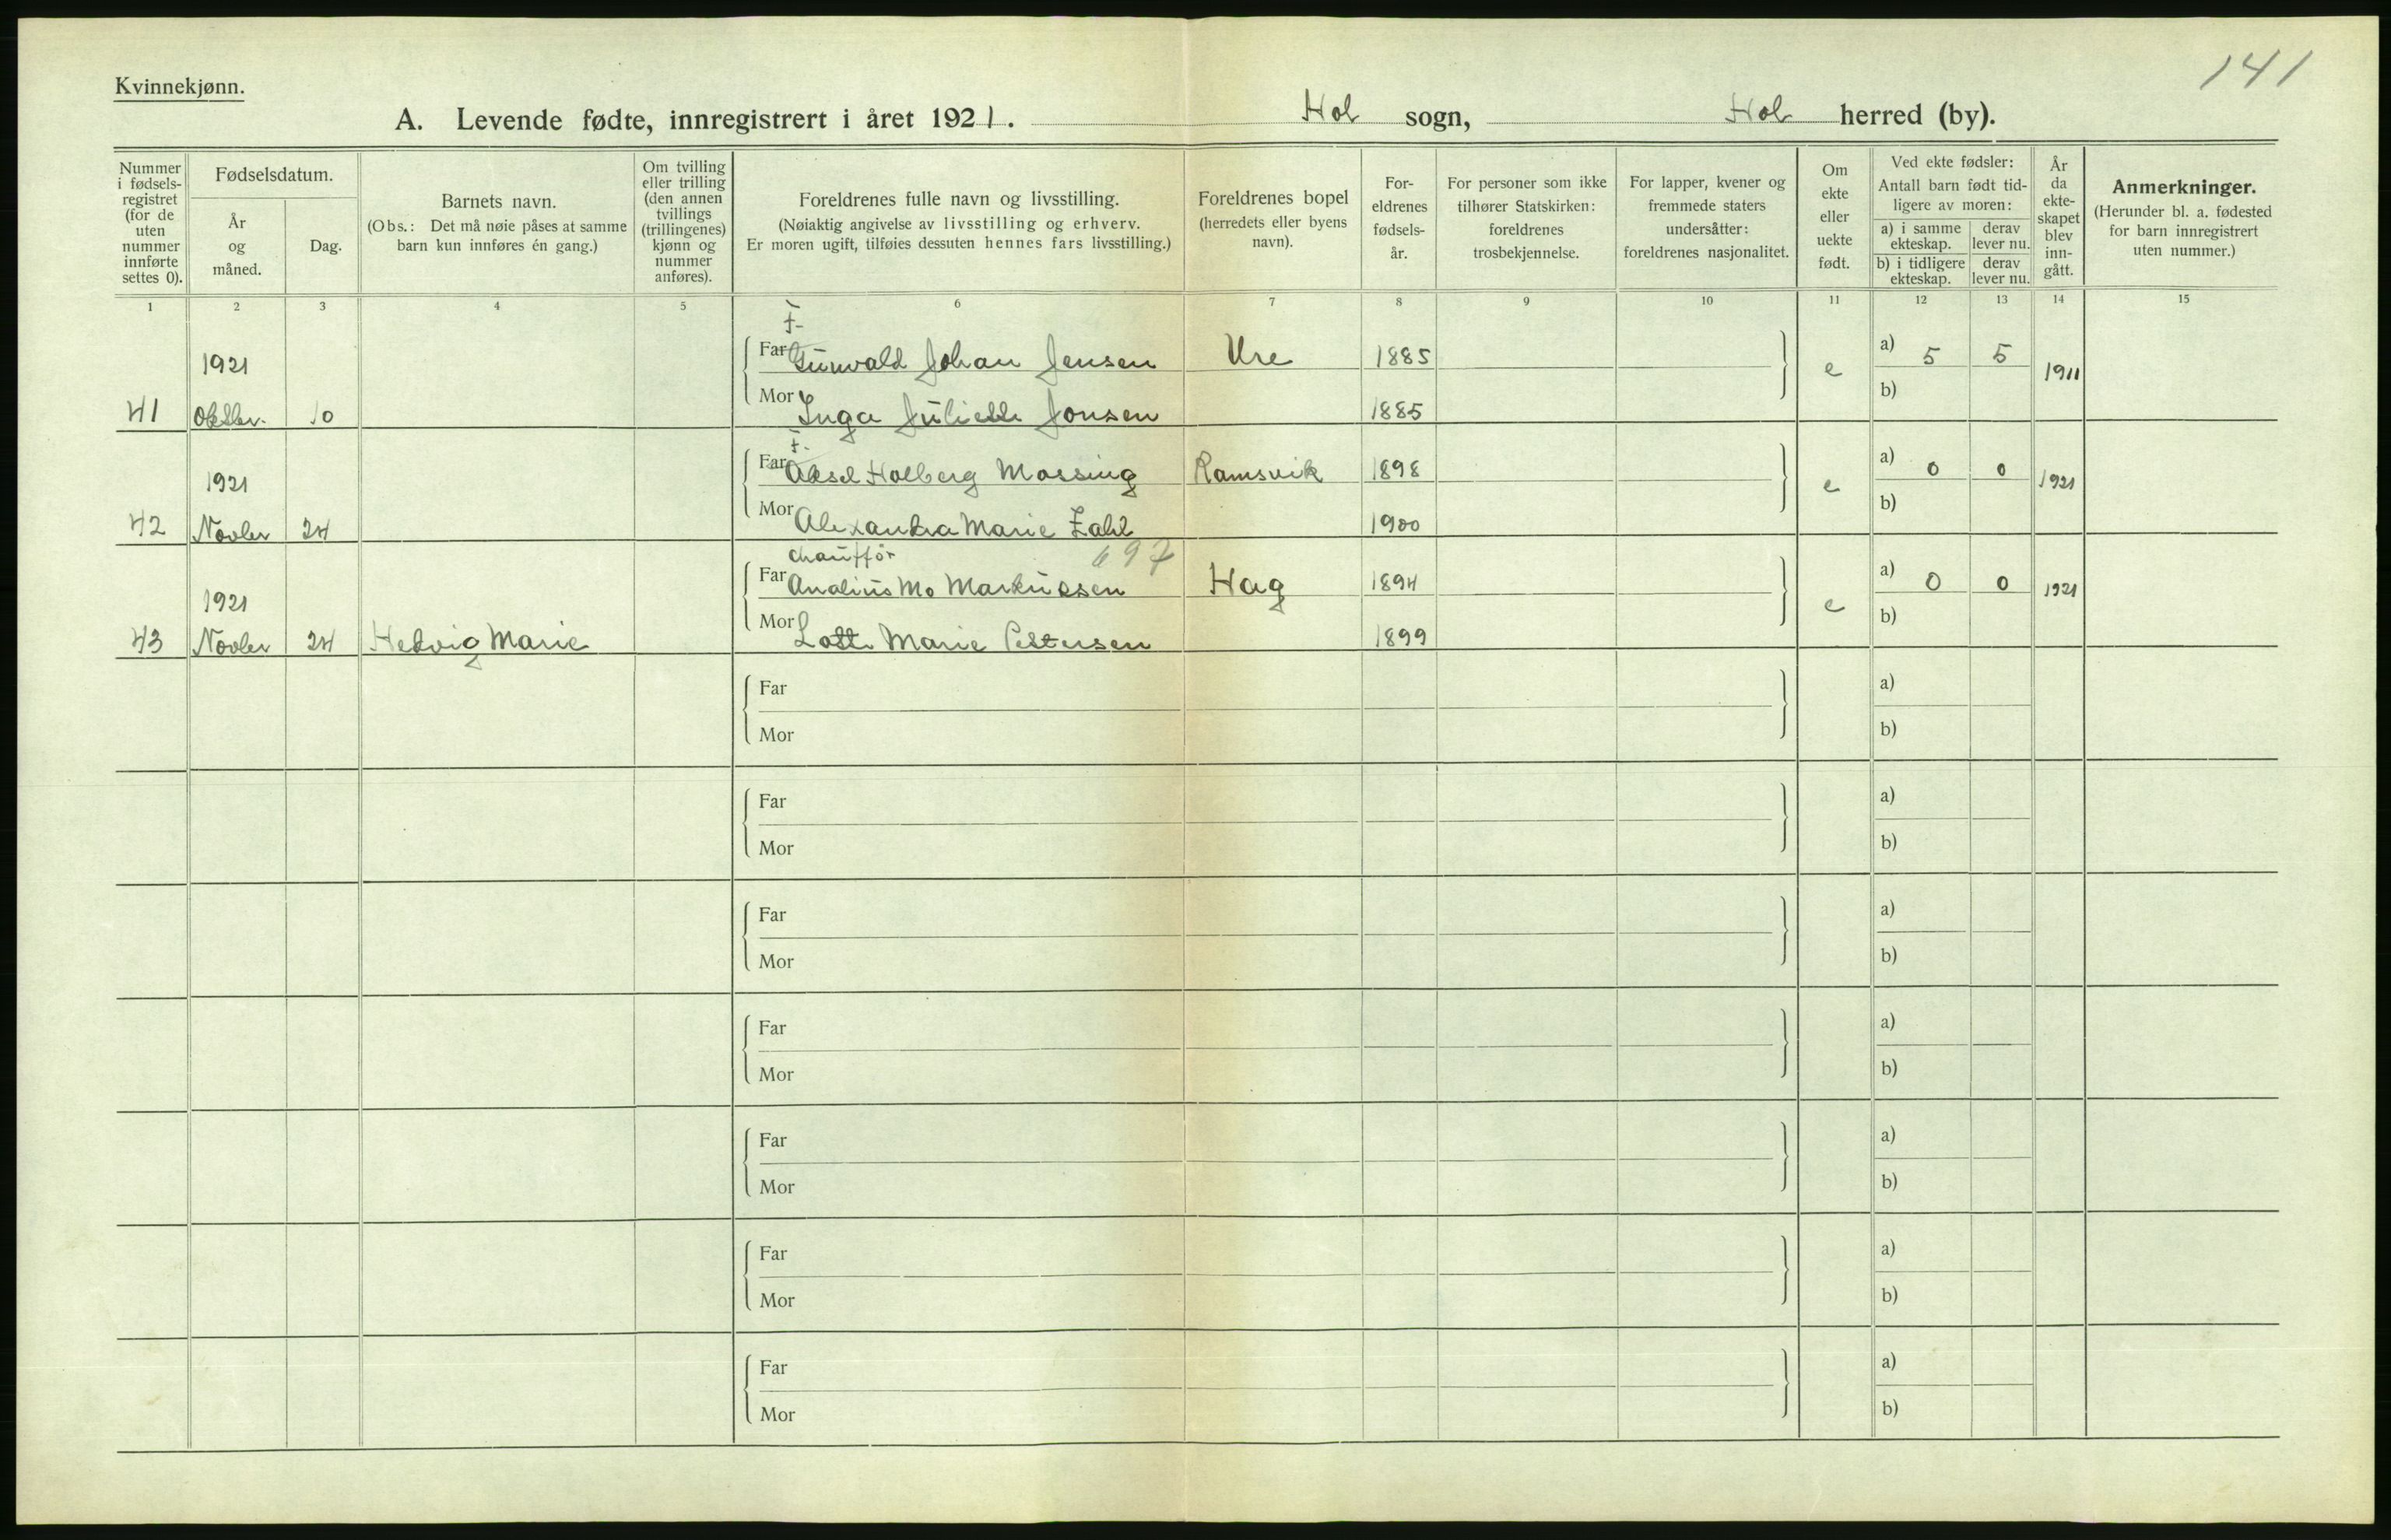 141
Kvinnekjønn.
A. Levende fødte, innregistrert i året 1921. Hol sogn, Hol herred (by).
Nummer i fødselsregistret (for de uten nummer innførte settes 0).
Fødselsdatum.
År og måned.
Dag.
Barnets navn.
(Obs.: Det må nøie påses at samme barn kun innføres én gang.)
Om tvilling eller trilling (den annen tvillings (trillingenes) kjønn og nummer anføres).
Foreldrenes fulle navn og livsstilling.
(Nøiaktig angivelse av livsstilling og erhverv.
Er moren ugift, tilføies dessuten hennes fars livsstilling.)
Foreldrenes bopel (herredets eller byens navn).
For-
eldrenes
fødsels-
år.
For personer som ikke tilhører Statskirken: foreldrenes trosbekjennelse.
For lapper, kvener og fremmede staters undersåtter: foreldrenes nasjonalitet.
Om ekte eller uekte født.
Ved ekte fødsler:
Antall barn født tid-
ligere av moren:
a) i samme ekteskap. derav lever nu.
b) i tidligere ekteskap. derav lever nu.
År da ekte-
skapet blev inn-
gått.
Anmerkninger.
(Herunder bl. a. fødested for barn innregistrert uten nummer.)
1 2 3 4 5 6 7 8 9 10 11 12 13 14 15
F.
1921 Far Gunvald Johan Jensen Ure 1885 e a) 5 5 1911
41 Oktbr. 10 Mor Inga Juliette Jonsen 1885 b)
F.
1921 Far Aksel Holberg Mossing Ramsvik 1898 e a) 0 0 1921
42 Novbr 24 Mor Alexandra Marie Zahl 1900 b)
chauffør 697
1921 Far Analius Mo Markussen Hag 1894 e a) 0 0 1921
43 Novbr 24 Hedvig Marie Mor Lotte Marie Pettersen 1899 b)
Far a)
Mor b)
Far a)
Mor b)
Far a)
Mor b)
Far a)
Mor b)
Far a)
Mor b)
Far a)
Mor b)
Far a)
Mor b)